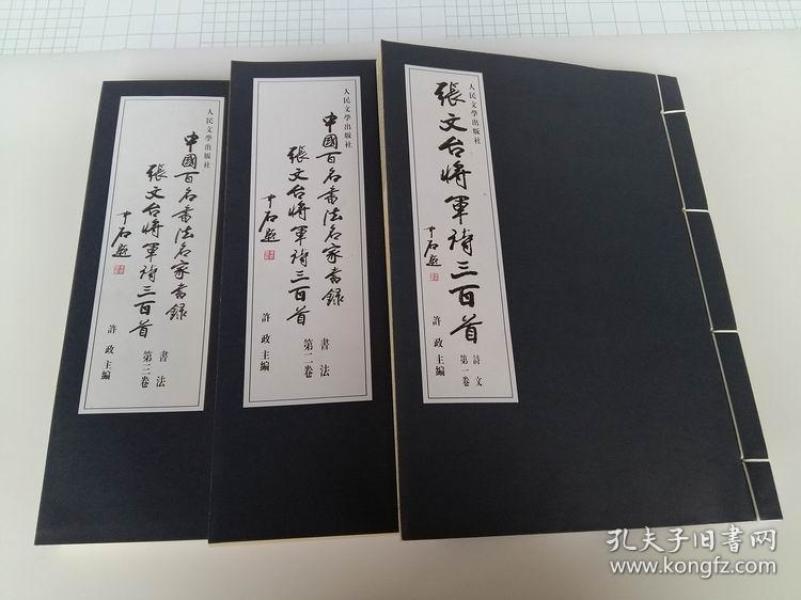 人民文學出版社
張文台將軍詩三百首
中石題
許政主編
詩文
第一卷
人民文學出版社
中國百名書法名家書錄
張文台將軍詩三百首
中石題
許政主編
書法
第二卷
人民文學出版社
中國百名書法名家書錄
張文台將軍詩三百首
中石題
許政主編
書法
第三卷
孔夫子旧书网
www.kongfz.com